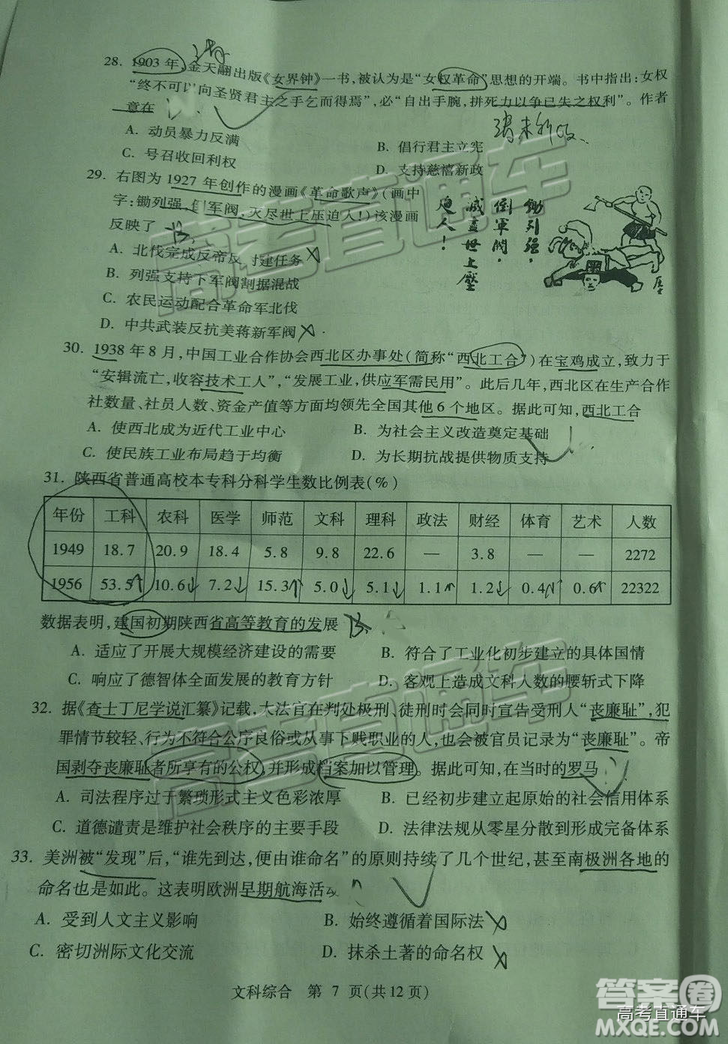 28. 1903年,金天翮出版《女界钟》一书,被认为是“女权革命”思想的开端。书中指出:女权
“终不可以向圣贤君主之手乞而得焉”,必“自出手腕,拼死力以争已失之权利”。作者
意在
A. 动员暴力反满 B. 倡行君主立宪
C. 号召收回利权 D. 支持慈禧新政
29. 右图为1927年创作的漫画《革命歌声》(画中
字:锄列强,倒军阀,灭尽世上压迫人!)该漫画
反映了
锄列强,
倒軍閥,
滅盡世上壓
迫人!
A. 北伐完成反帝反封建任务
B. 列强支持下军阀割据混战
C. 农民运动配合革命军北伐
D. 中共武装反抗美蒋新军阀
30. 1938年8月,中国工业合作协会西北区办事处(简称“西北工合”)在宝鸡成立,致力于
“安辑流亡,收容技术工人”,“发展工业,供应军需民用”。此后几年,西北区在生产合作
社数量、社员人数、资金产值等方面均领先全国其他6个地区。据此可知,西北工合
A. 使西北成为近代工业中心 B. 为社会主义改造奠定基础
C. 使民族工业布局趋于均衡 D. 为长期抗战提供物质支持
31. 陕西省普通高校本专科分科学生数比例表(%)
年份 工科 农科 医学 师范 文科 理科 政法 财经 体育 艺术 人数
1949 18.7 20.9 18.4 5.8 9.8 22.6 — 3.8 — — 2272
1956 53.5 10.6 7.2 15.3 5.0 5.1 1.1 1.2 0.4 0.6 22322
数据表明,建国初期陕西省高等教育的发展
A. 适应了开展大规模经济建设的需要 B. 符合了工业化初步建立的具体国情
C. 响应了德智体全面发展的教育方针 D. 客观上造成文科人数的腰斩式下降
32. 据《查士丁尼学说汇纂》记载,大法官在判处极刑、徒刑时会同时宣告受刑人“丧廉耻”,犯
罪情节较轻、行为不符合公序良俗或从事下贱职业的人,也会被官员记录为“丧廉耻”。帝
国剥夺丧廉耻者所享有的公权,并形成档案加以管理。据此可知,在当时的罗马
A. 司法程序过于繁琐形式主义色彩浓厚 B. 已经初步建立起原始的社会信用体系
C. 道德谴责是维护社会秩序的主要手段 D. 法律法规从零星分散到形成完备体系
33. 美洲被“发现”后,“谁先到达,便由谁命名”的原则持续了几个世纪,甚至南极洲各地的
命名也是如此。这表明欧洲早期航海活动
A. 受到人文主义影响 B. 始终遵循着国际法
C. 密切洲际文化交流 D. 抹杀土著的命名权
文科综合 第 7 页(共12页)
高考直通车
高考直通车
答案圈
高考直通车
MXQE.COM